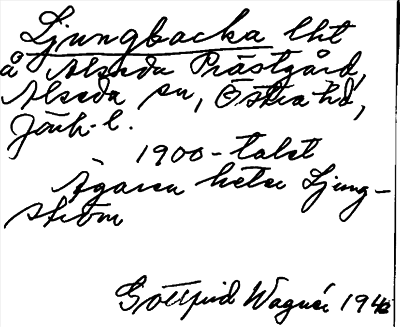 Ljungbacka lht
å Alseda Prästgård,
Alseda sn, Östra hd,
Jönk. l.
1900-talet
Ägaren heter Ljung-
ström
Gottfrid Wagnér 194